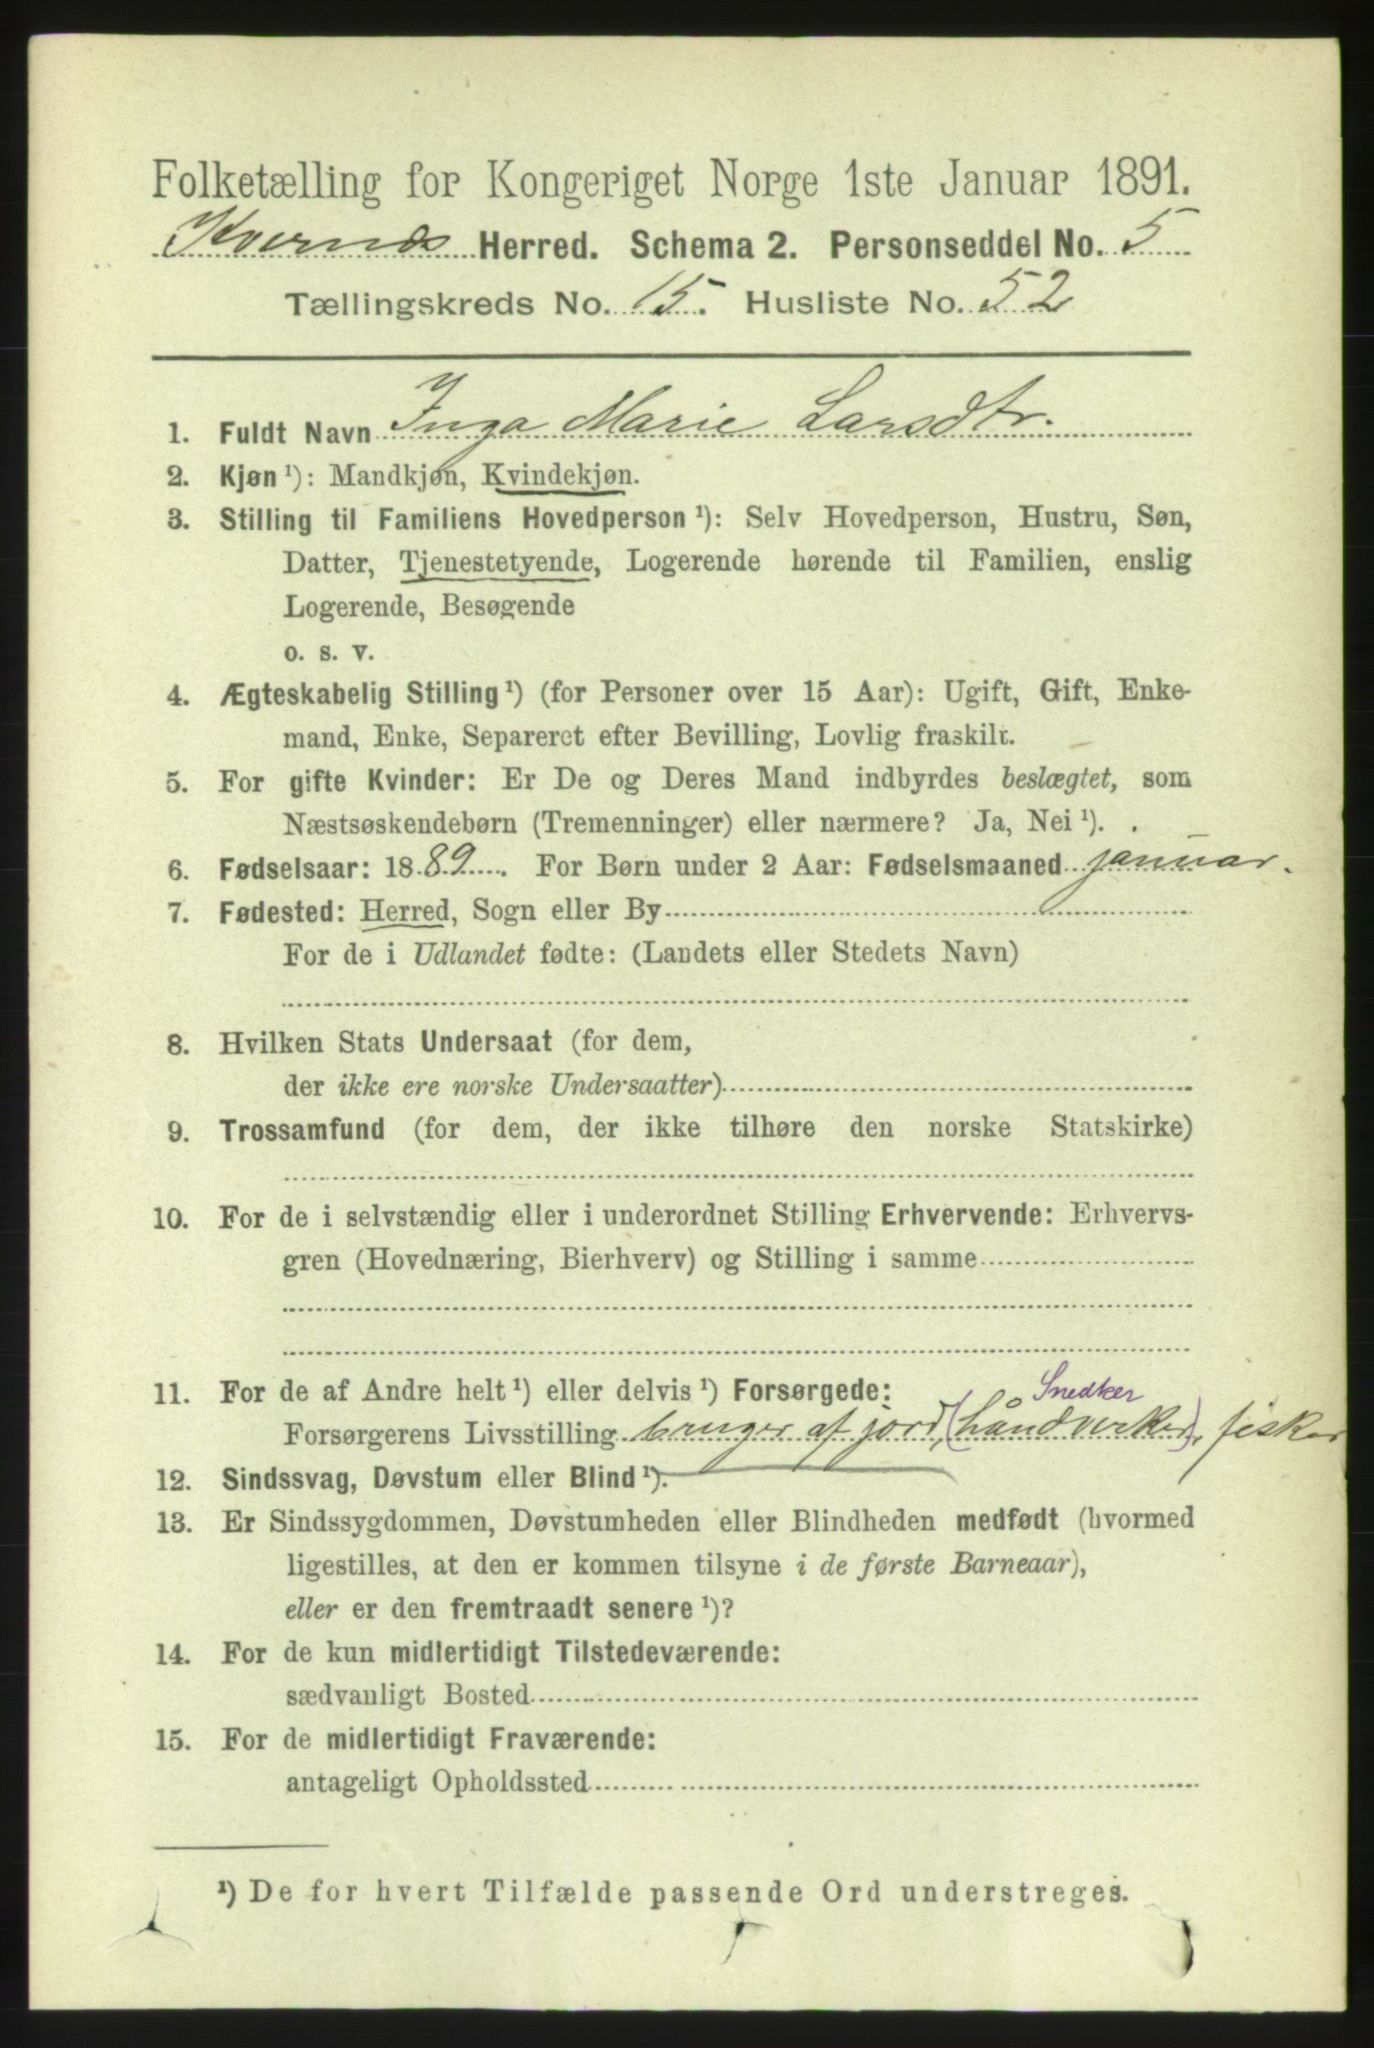 Folketælling for Kongeriget Norge 1ste Januar 1891.
Kvernes Herred. Schema 2. Personseddel No. 5
Tællingskreds No. 15. Husliste No. 52
1. Fuldt Navn Inga Marie Larsdtr.
2. Kjøn ¹): Mandkjøn, Kvindekjøn.
3. Stilling til Familiens Hovedperson ¹): Selv Hovedperson, Hustru, Søn,
Datter, Tjenestetyende, Logerende hørende til Familien, enslig
Logerende, Besøgende
o. s. v.
4. Ægteskabelig Stilling ¹) (for Personer over 15 Aar): Ugift, Gift, Enke-
mand, Enke, Separeret efter Bevilling, Lovlig fraskilt.
5. For gifte Kvinder: Er De og Deres Mand indbyrdes beslægtet, som
Næstsøskendebørn (Tremenninger) eller nærmere? Ja, Nei ¹).
6. Fødselsaar: 1889. For Børn under 2 Aar: Fødselsmaaned januar.
7. Fødested: Herred, Sogn eller By
For de i Udlandet fødte: (Landets eller Stedets Navn)
8. Hvilken Stats Undersaat (for dem,
der ikke ere norske Undersaatter)
9. Trossamfund (for dem, der ikke tilhøre den norske Statskirke)
10. For de i selvstændig eller i underordnet Stilling Erhvervende: Erhvervs-
gren (Hovednæring, Bierhverv) og Stilling i samme
11. For de af Andre helt ¹) eller delvis ¹) Forsørgede:
Snedker
Forsørgerens Livsstilling bruger af jord, (håndverker), fisker
12. Sindssvag, Døvstum eller Blind ¹).
13. Er Sindssygdommen, Døvstumheden eller Blindheden medfødt (hvormed
ligestilles, at den er kommen tilsyne i de første Barneaar),
eller er den fremtraadt senere ¹)?
14. For de kun midlertidigt Tilstedeværende:
sædvanligt Bosted
15. For de midlertidigt Fraværende:
antageligt Opholdssted
¹) De for hvert Tilfælde passende Ord understreges.